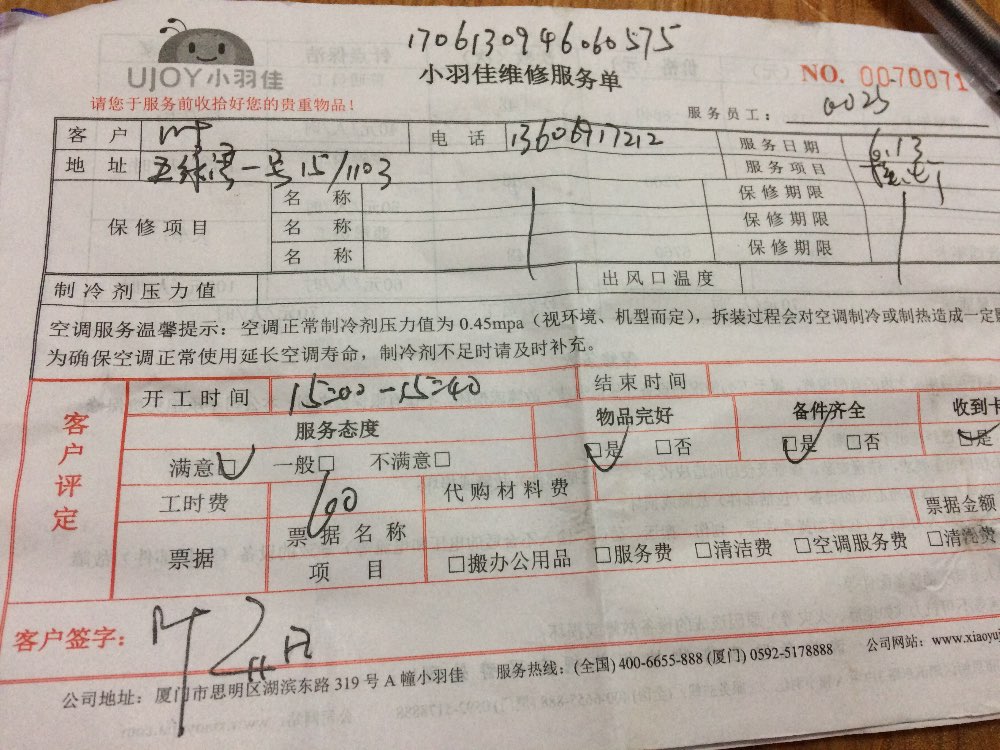 170613094606057​5
UJOY小羽佳
小羽佳维修服务单
NO. 0070071
请您于服务前收拾好您的贵重物品！
服务员工： 0025
客户 叶 电话 13606917212 服务日期 6.13
地址 五缘湾一号15/1103 服务项目
保修项目 名称 保修期限
名称 保修期限
名称 保修期限
制冷剂压力值 出风口温度
空调服务温馨提示：空调正常制冷剂压力值为0.45mpa（视环境、机型而定），拆装过程会对空调制冷或制热造成一定
为确保空调正常使用延长空调寿命，制冷剂不足时请及时补充。
客户评定
开工时间 15:00-15:40 结束时间
服务态度 物品完好 备件齐全 收到卡
满意□ 一般□ 不满意□ □是 □否 □是 □否 □是
工时费 60 代购材料费
票据 票据名称 票据金额
项目 □搬办公用品 □服务费 □清洁费 □空调服务费 □清洗费
客户签字： 叶
公司地址：厦门市思明区湖滨东路319号A幢小羽佳 服务热线：(全国)400-6655-888 (厦门)0592-5178888 公司网站：www.xiaoyuj